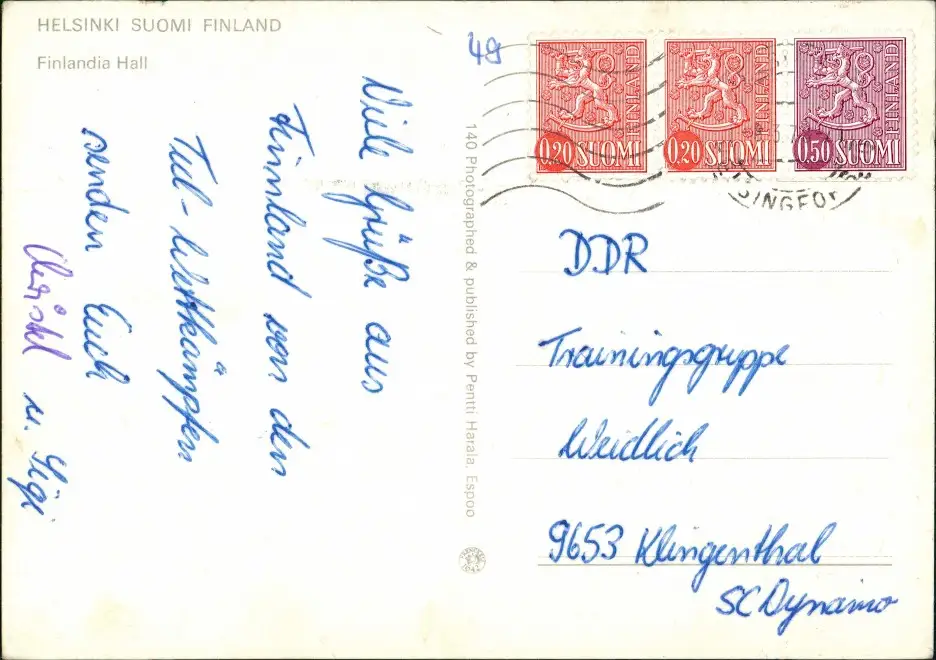 HELSINKI SUOMI FINLAND
Finlandia Hall
49
FINLAND
0,20 SUOMI
FINLAND
0,20 SUOMI
FINLAND
0,50 SUOMI
Viele Grüße aus
Finnland von den
Tul-Wettkämpfen
senden Euch
u. Sigi
140 Photographed & published by Pentti Harala, Espoo
DDR
Trainingsgruppe
Weidlich
9653 Klingenthal
SC Dynamo